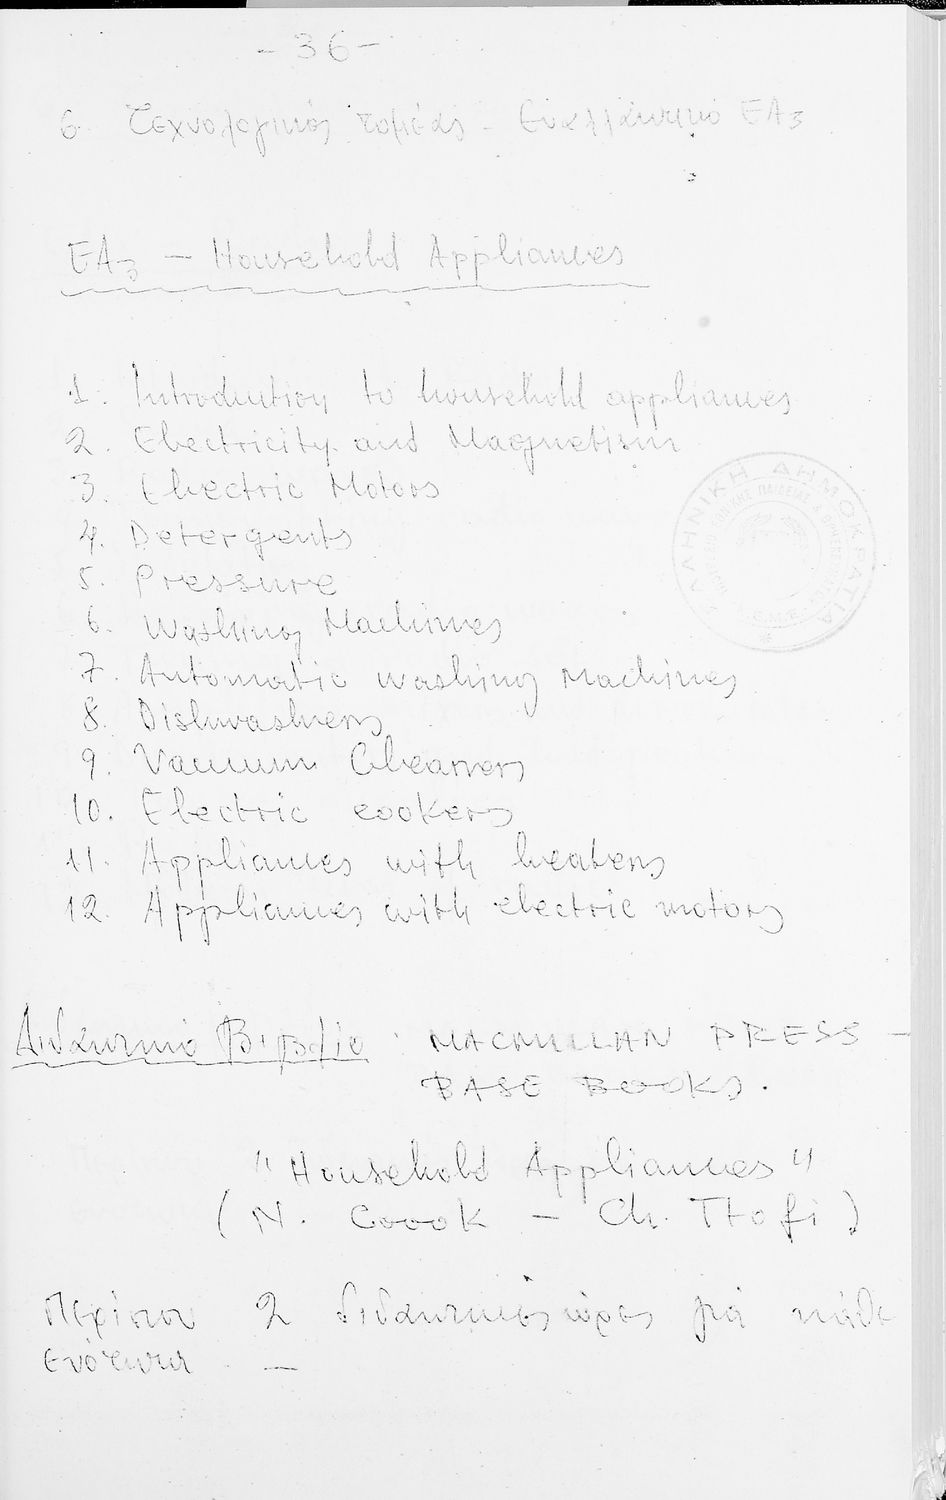 - 36 -
6. Τεχνολογικός τομέας - Εναλλακτικό ΕΑ3
ΕΑ3 - Household Appliances
1. Introduction to household appliances
2. Electricity and Magnetism
3. Electric Motors
4. Detergents
5. Pressure
6. Washing Machines
7. Automatic washing Machines
8. Dishwashers
9. Vacuum Cleaners
10. Electric cookers
11. Appliances with heaters
12. Appliances with electric motors
ΕΛΛΗΝΙΚΗ ΔΗΜΟΚΡΑΤΙΑ
Διδακτικό Βιβλίο : MACMILLAN PRESS -
BASE BOOKS.
"Household Appliances"
(N. Coook - Ch. Ttofi)
Περίπου 2 διδακτικές ώρες γιά κάθε
ενότητα -